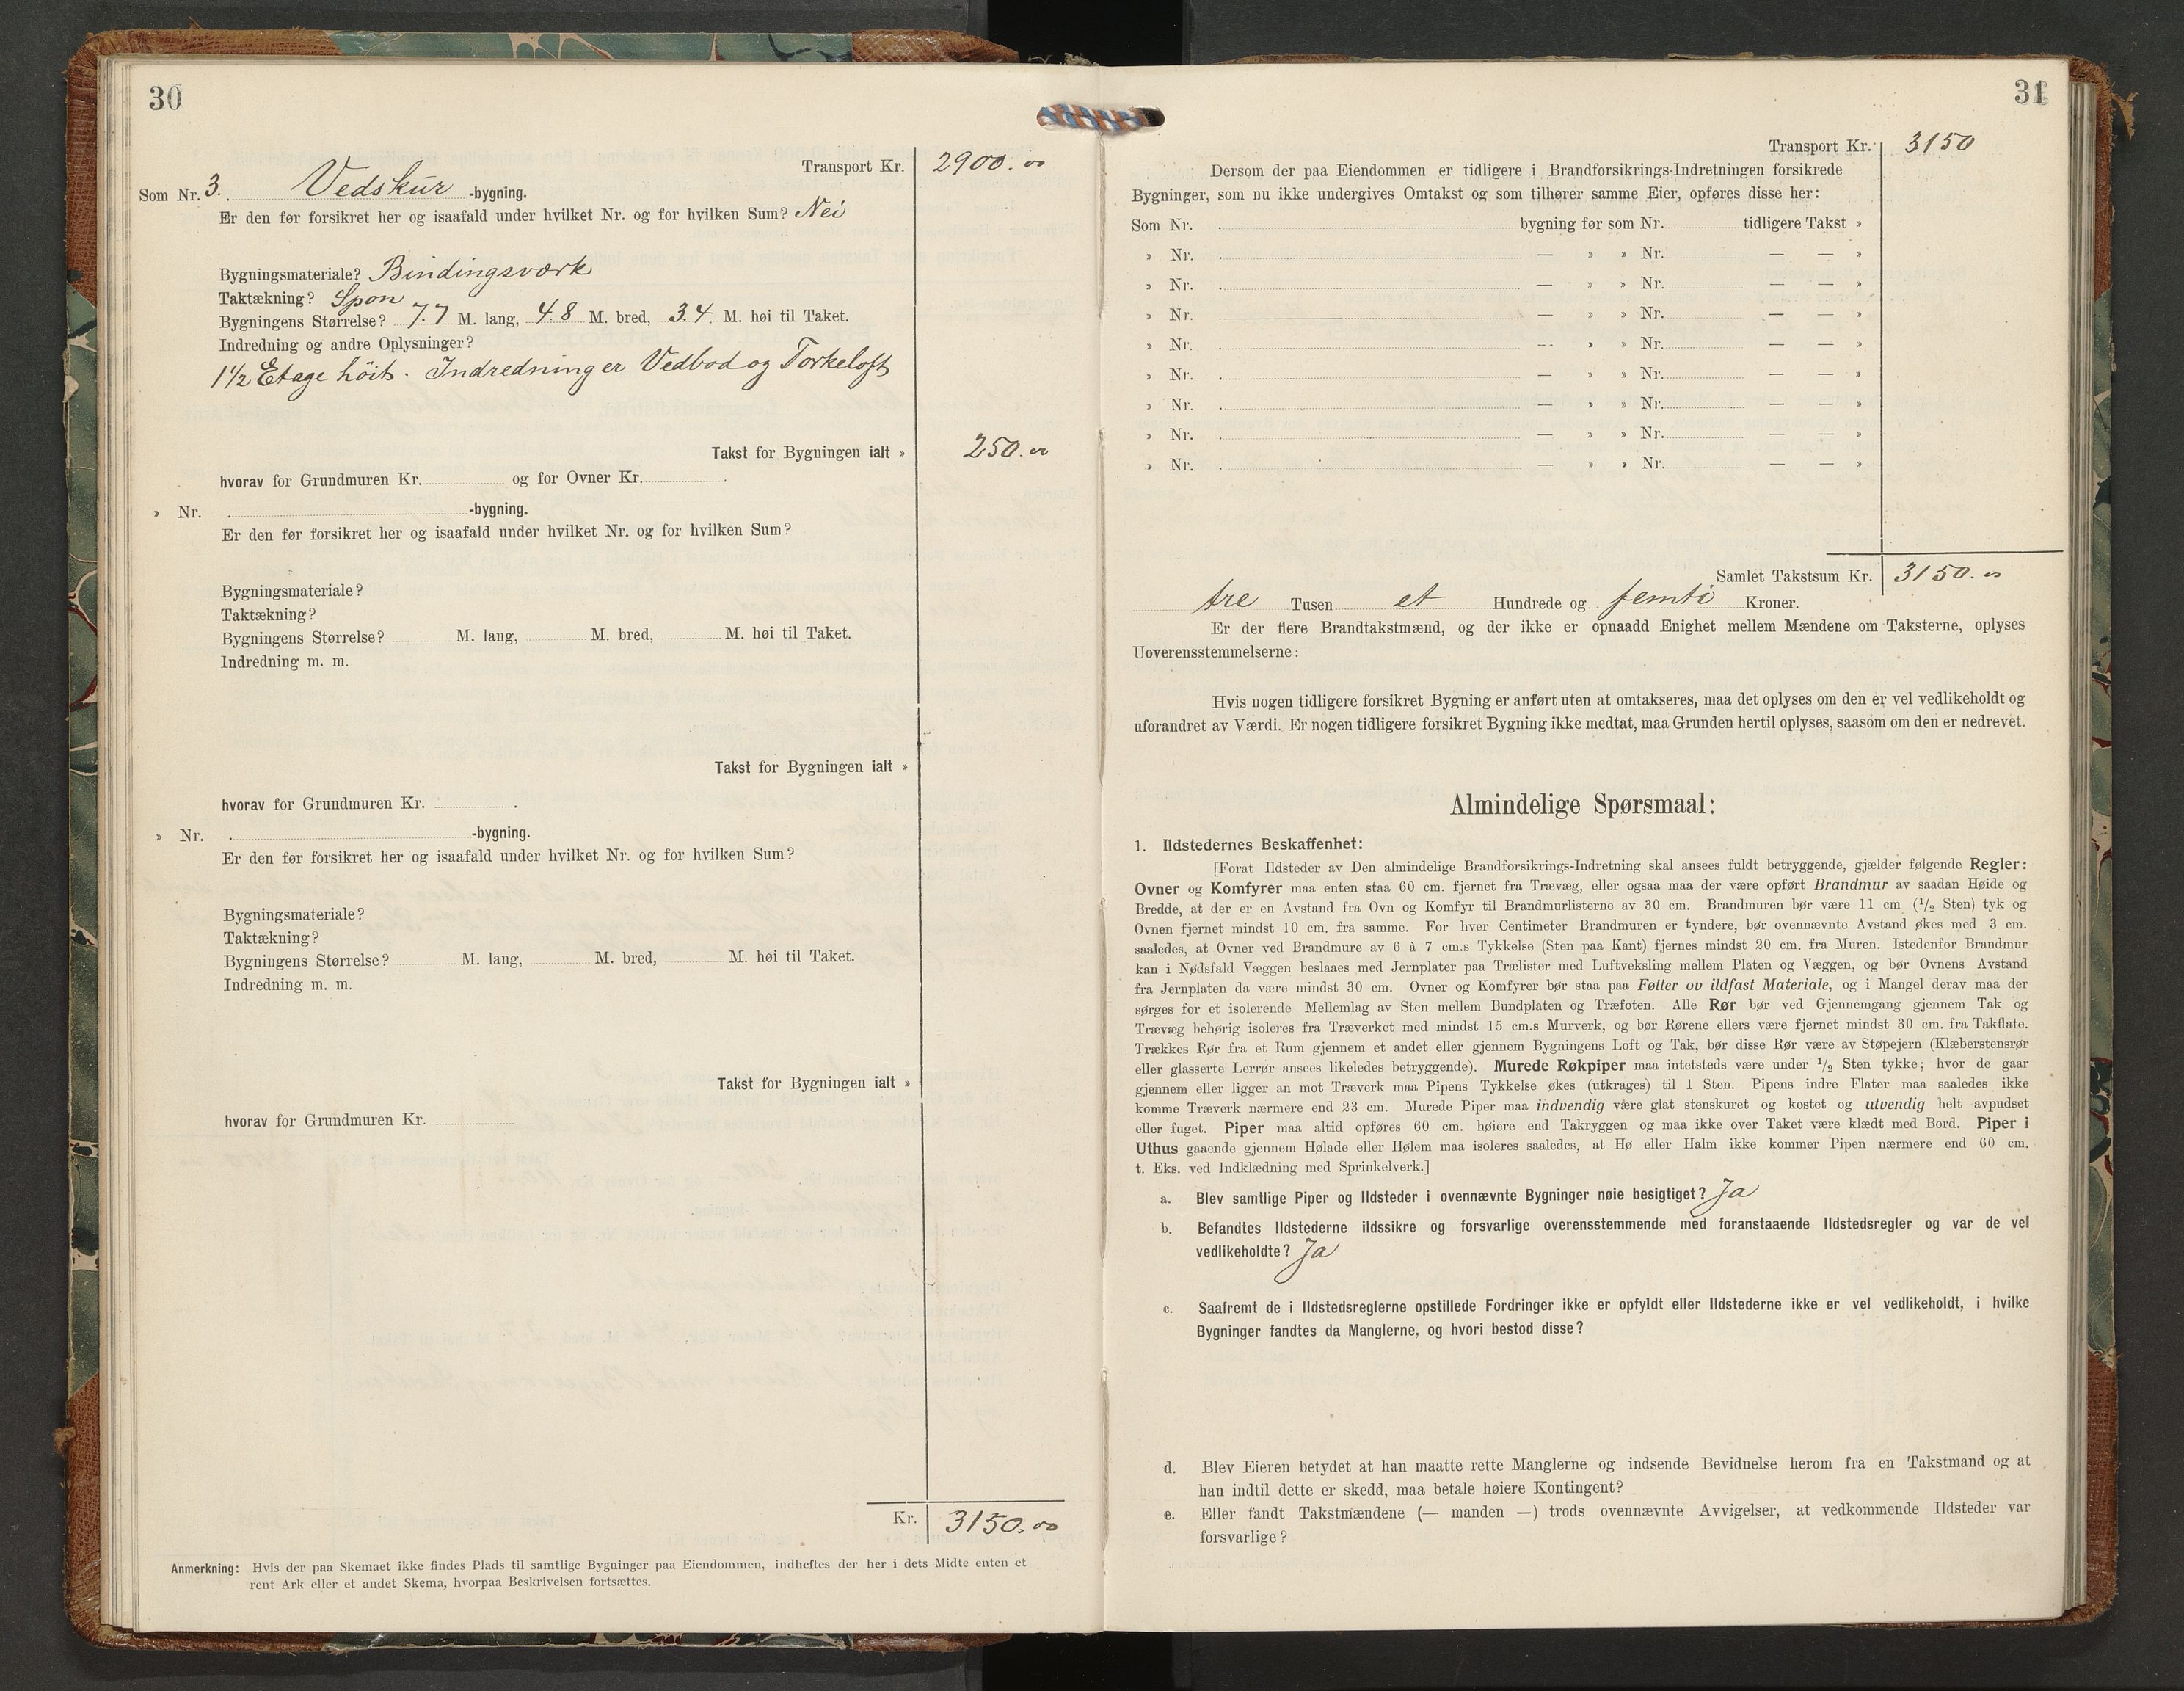 30
Transport Kr. 2900.00
Som Nr. 3. Vedskur -bygning.
Er den før forsikret her og isaafald under hvilket Nr. og for hvilken Sum? Nei
Bygningsmateriale? Bindingsværk
Taktækning? Spon
Bygningens Størrelse? 7.7 M. lang, 4.8 M. bred, 3.4 M. høi til Taket.
Indredning og andre Oplysninger?
1½ Etage höit. Indredning er Vedbod og Torkeloft
Takst for Bygningen ialt » 250.00
hvorav for Grundmuren Kr. og for Ovner Kr.
» Nr. -bygning.
Er den før forsikret her og isaafald under hvilket Nr. og for hvilken Sum?
Bygningsmateriale?
Taktækning?
Bygningens Størrelse? M. lang, M. bred, M. høi til Taket.
Indredning m. m.
Takst for Bygningen ialt »
hvorav for Grundmuren Kr.
» Nr. -bygning.
Er den før forsikret her og isaafald under hvilket Nr. og for hvilken Sum?
Bygningsmateriale?
Taktækning?
Bygningens Størrelse? M. lang, M. bred, M. høi til Taket.
Indredning m. m.
Takst for Bygningen ialt »
hvorav for Grundmuren Kr.
Kr. 3150.00
Anmerkning: Hvis der paa Skemaet ikke findes Plads til samtlige Bygninger paa Eiendommen, indheftes der her i dets Midte enten et
rent Ark eller et andet Skema, hvorpaa Beskrivelsen fortsættes.
31
Transport Kr. 3150
Dersom der paa Eiendommen er tidligere i Brandforsikrings-Indretningen forsikrede
Bygninger, som nu ikke undergives Omtakst og som tilhører samme Eier, opføres disse her:
Som Nr. bygning før som Nr. tidligere Takst »
» Nr. — » » Nr. — — »
» Nr. — » » Nr. — — »
» Nr. — » » Nr. — — »
» Nr. — » » Nr. — — »
» Nr. — » » Nr. — — »
» Nr. — » » Nr. — — »
» Nr. — » » Nr. — — »
» Nr. — » » Nr. — — »
Samlet Takstsum Kr. 3150.00
tre Tusen et Hundrede og femti Kroner.
Er der flere Brandtakstmænd, og der ikke er opnaadd Enighet mellem Mændene om Taksterne, oplyses
Uoverensstemmelserne:
Hvis nogen tidligere forsikret Bygning er anført uten at omtakseres, maa det oplyses om den er vel vedlikeholdt og
uforandret av Værdi. Er nogen tidligere forsikret Bygning ikke medtat, maa Grunden hertil oplyses, saasom om den er nedrevet.
Almindelige Spørsmaal:
1. Ildstedernes Beskaffenhet:
[Forat Ildsteder av Den almindelige Brandforsikrings-Indretning skal ansees fuldt betryggende, gjælder følgende Regler:
Ovner og Komfyrer maa enten staa 60 cm. fjernet fra Trævæg, eller ogsaa maa der være opført Brandmur av saadan Høide og
Bredde, at der er en Avstand fra Ovn og Komfyr til Brandmurlisterne av 30 cm. Brandmuren bør være 11 cm (1/2 Sten) tyk og
Ovnen fjernet mindst 10 cm. fra samme. For hver Centimeter Brandmuren er tyndere, bør ovennævnte Avstand økes med 3 cm.
saaledes, at Ovner ved Brandmure av 6 à 7 cm.s Tykkelse (Sten paa Kant) fjernes mindst 20 cm. fra Muren. Istedenfor Brandmur
kan i Nødsfald Væggen beslaaes med Jernplater paa Trælister med Luftveksling mellem Platen og Væggen, og bør Ovnens Avstand
fra Jernplaten da være mindst 30 cm. Ovner og Komfyrer bør staa paa Føtter ov ildfast Materiale, og i Mangel derav maa der
sørges for et isolerende Mellemlag av Sten mellem Bundplaten og Træfoten. Alle Rør bør ved Gjennemgang gjennem Tak og
Trævæg behørig isoleres fra Træverket med mindst 15 cm.s Murverk, og bør Rørene ellers være fjernet mindst 30 cm. fra Takflate.
Trækkes Rør fra et Rum gjennem et andet eller gjennem Bygningens Loft og Tak, bør disse Rør være av Støpejern (Klæberstensrør
eller glasserte Lerrør ansees likeledes betryggende). Murede Røkpiper maa intetsteds være under 1/2 Sten tykke; hvor de gaar
gjennem eller ligger an mot Træverk maa Pipens Tykkelse økes (utkrages) til 1 Sten. Pipens indre Flater maa saaledes ikke
komme Træverk nærmere end 23 cm. Murede Piper maa indvendig være glat stenskuret og kostet og utvendig helt avpudset
eller fuget. Piper maa altid opføres 60 cm. høiere end Takryggen og maa ikke over Taket være klædt med Bord. Piper i
Uthus gaaende gjennem Hølade eller Hølem maa isoleres saaledes, at Hø eller Halm ikke kommer Pipen nærmere end 60 cm.
t. Eks. ved Indklædning med Sprinkelverk.]
a. Blev samtlige Piper og Ildsteder i ovennævnte Bygninger nøie besigtiget? Ja
b. Befandtes Ildstederne ildssikre og forsvarlige overensstemmende med foranstaaende Ildstedsregler og var de vel
vedlikeholdte? Ja
c. Saafremt de i Ildstedsreglerne opstillede Fordringer ikke er opfyldt eller Ildstederne ikke er vel vedlikeholdt, i hvilke
Bygninger fandtes da Manglerne, og hvori bestod disse?
d. Blev Eieren betydet at han maatte rette Manglerne og indsende Bevidnelse herom fra en Takstmand og at
han indtil dette er skedd, maa betale høiere Kontingent?
e. Eller fandt Takstmændene (— manden —) trods ovennævnte Avvigelser, at vedkommende Ildsteder var
forsvarlige?